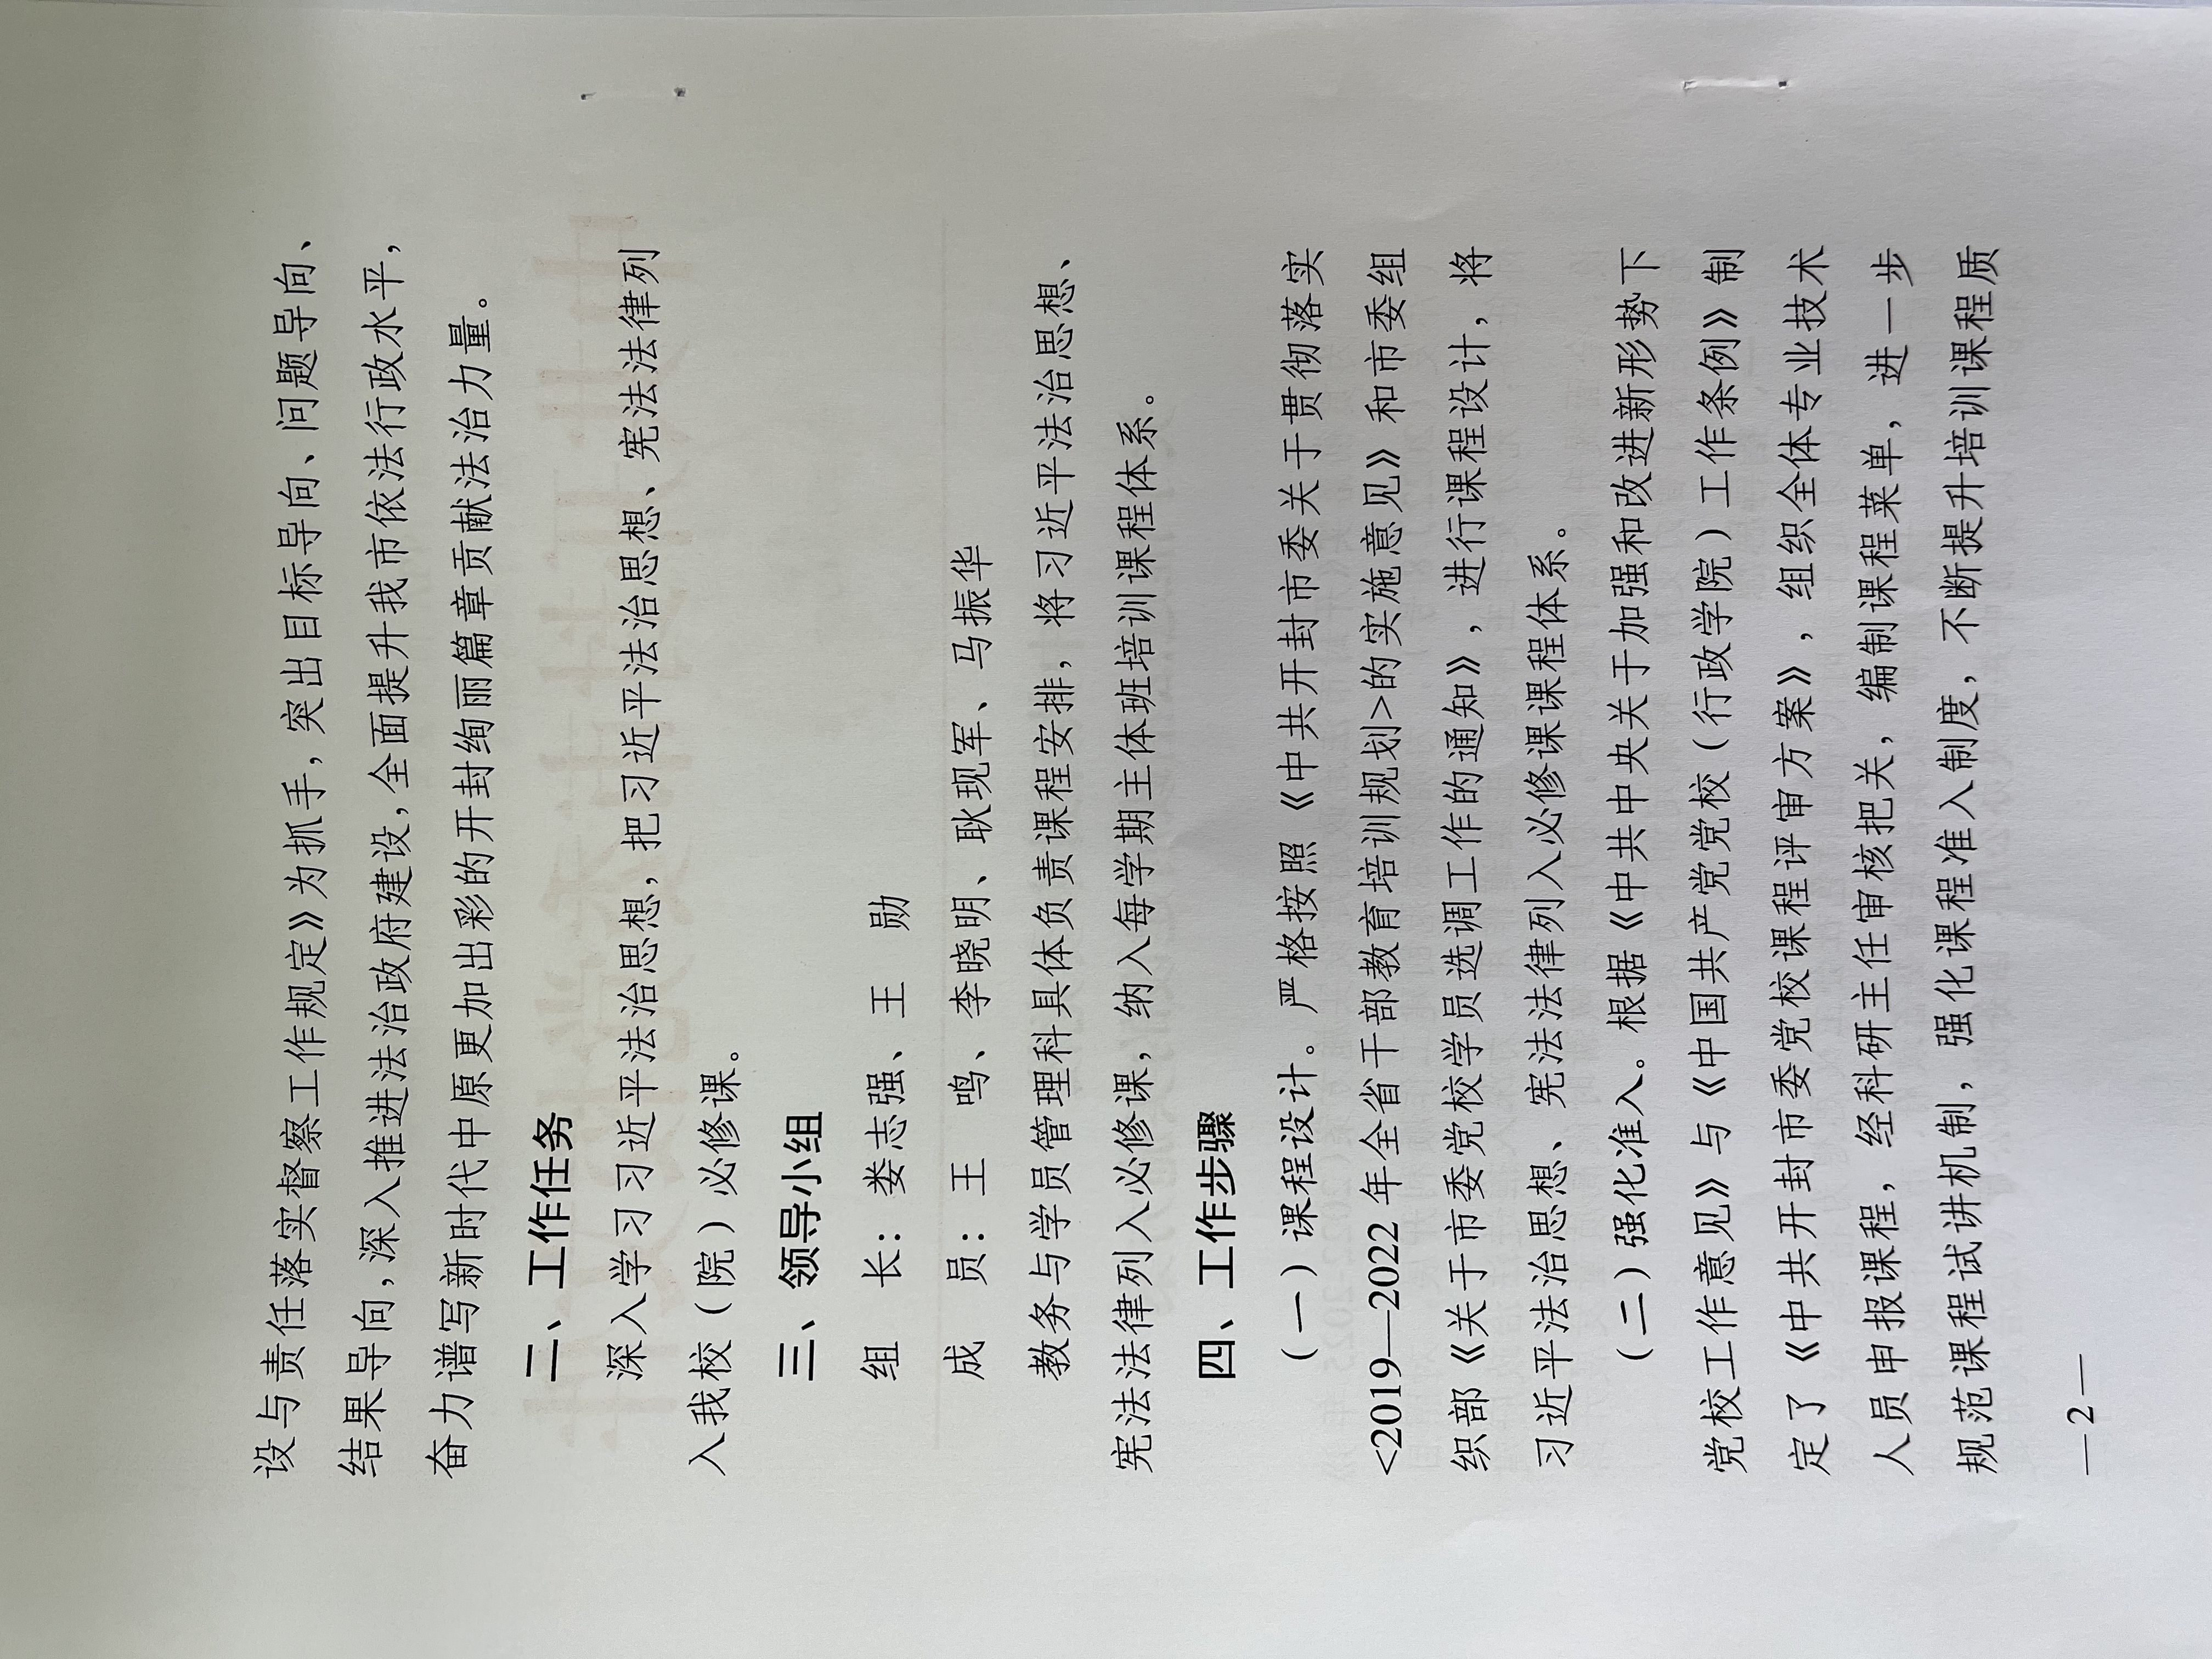 设与责任落实督察工作规定》为抓手，突出目标导向、问题导向、
结果导向，深入推进法治政府建设，全面提升我市依法行政水平，
奋力谱写新时代中原更加出彩的开封绚丽篇章贡献法治力量。
二、工作任务
深入学习习近平法治思想，把习近平法治思想、宪法法律列
入我校（院）必修课。
三、领导小组
组　长：娄志强、王　勋
成　员：王　鸣、李晓明、耿现军、马振华
教务与学员管理科具体负责课程安排，将习近平法治思想、
宪法法律列入必修课，纳入每学期主体班培训课程体系。
四、工作步骤
（一）课程设计。严格按照《中共开封市委关于贯彻落实
<2019—2022 年全省干部教育培训规划>的实施意见》和市委组
织部《关于市委党校学员选调工作的通知》，进行课程设计，将
习近平法治思想、宪法法律列入必修课课程体系。
（二）强化准入。根据《中共中央关于加强和改进新形势下
党校工作意见》与《中国共产党党校（行政学院）工作条例》制
定了《中共开封市委党校课程评审方案》，组织全体专业技术
人员申报课程，经科研主任审核把关，编制课程菜单，进一步
规范课程试讲机制，强化课程准入制度，不断提升培训课程质
—2—